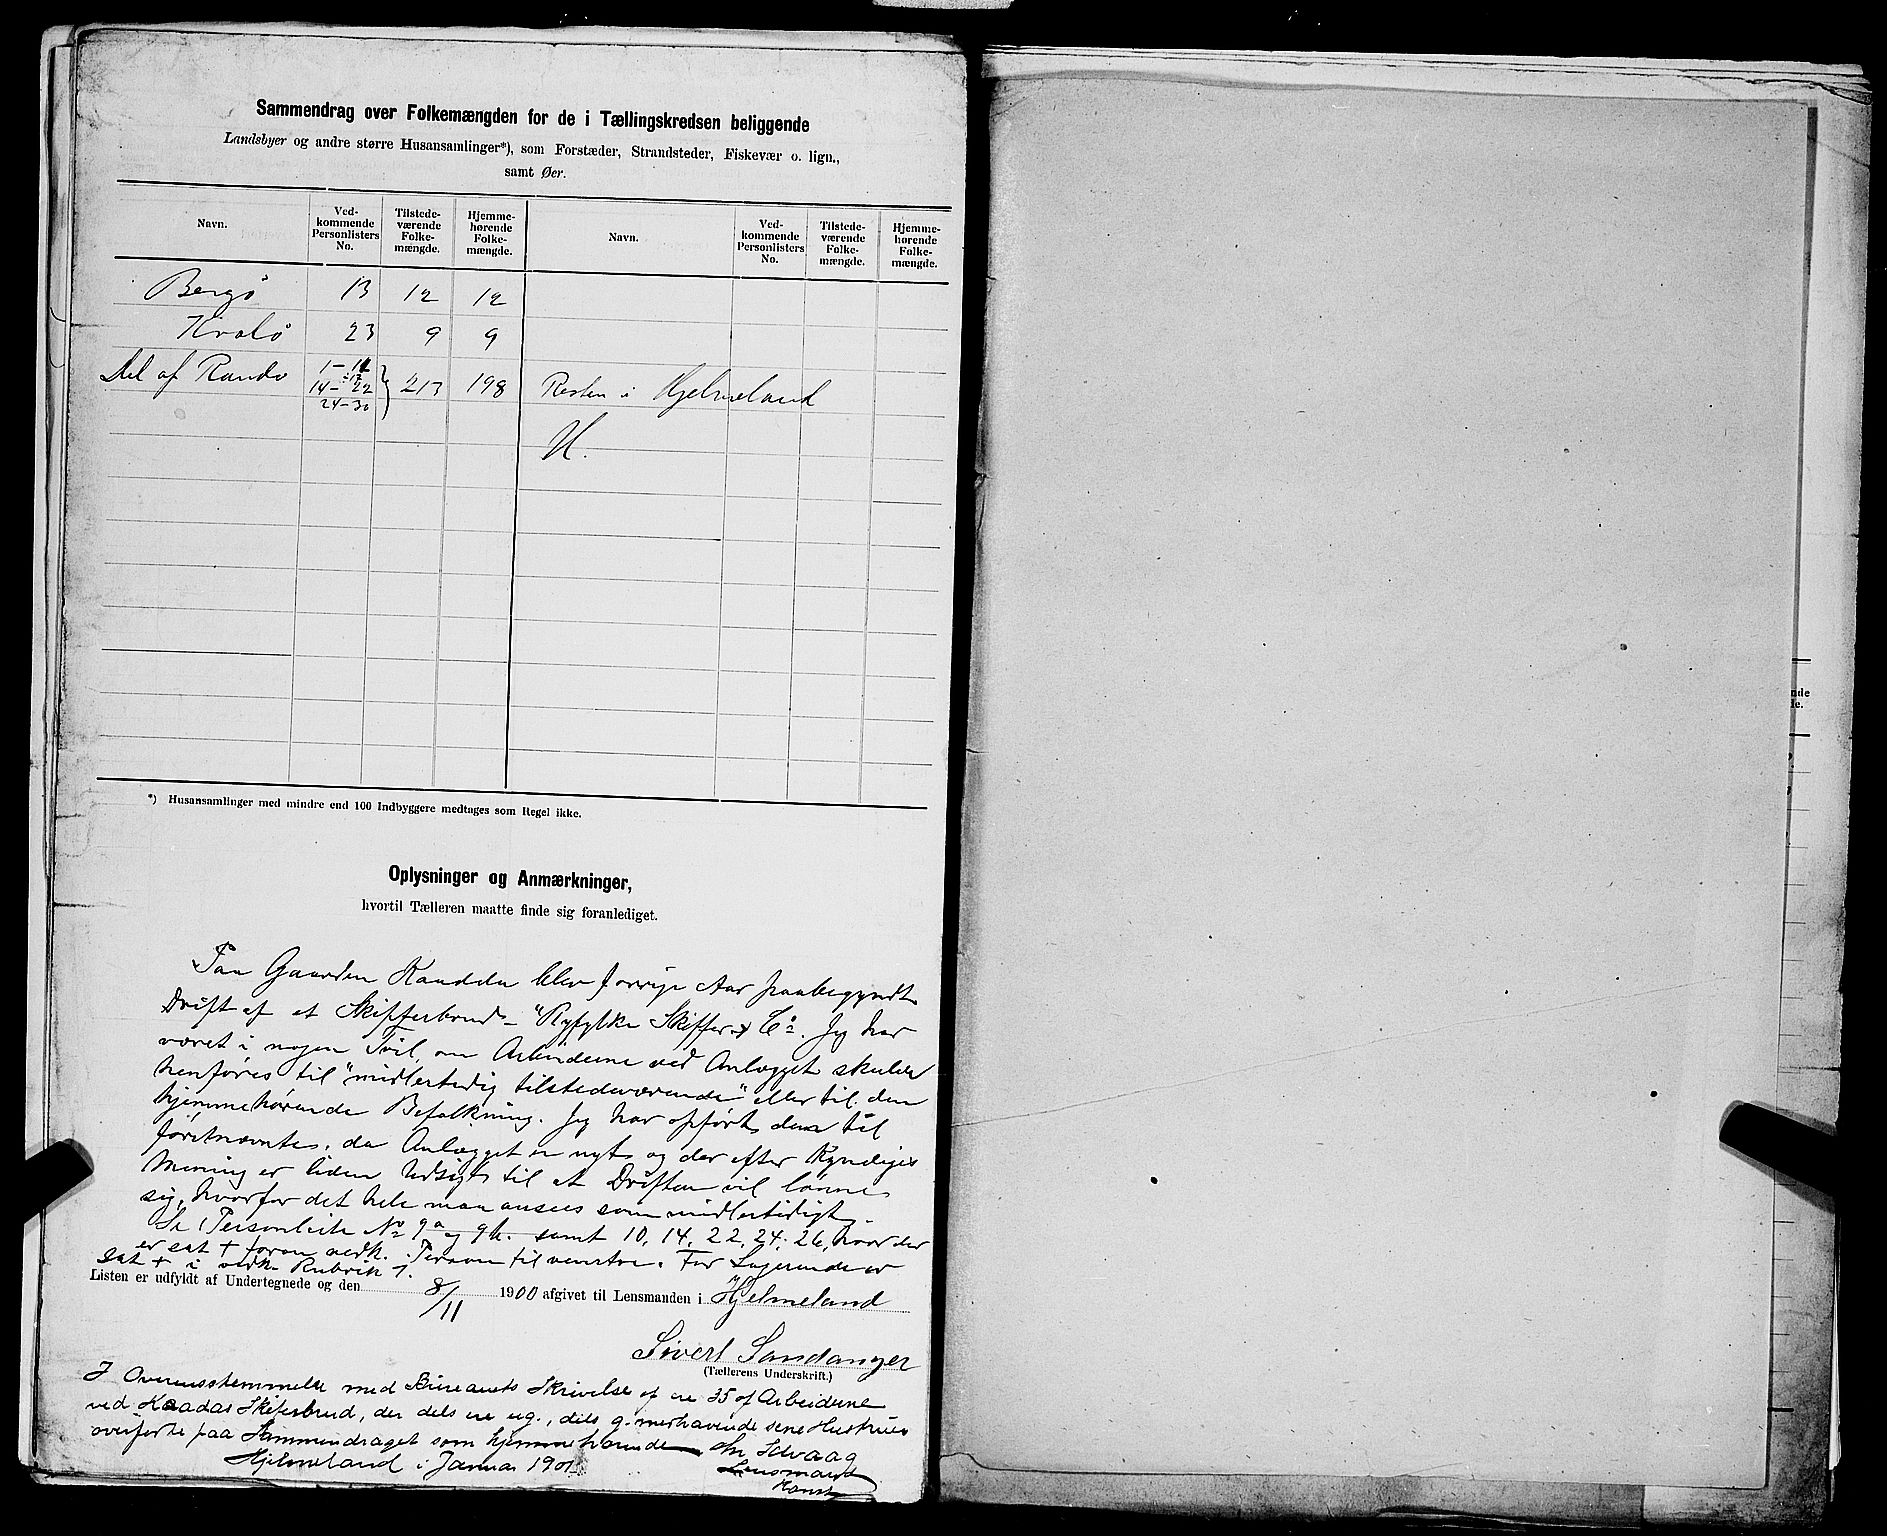 Sammendrag over Folkemængden for de i Tællingskredsen beliggende
Landsbyer og andre større Husansamlinger*), som Forstæder, Strandsteder, Fiskevær o. lign.,
samt Øer.
Navn. Ved-kommende Personlisters No. Tilstede-værende Folke-mængde. Hjemme-hørende Folke-mængde. Navn. Ved-kommende Personlisters No. Tilstede-værende Folke-mængde. Hjemme-hørende Folke-mængde.
Bergö 13 12 12
23 9 9
Del af Randö 1-11 14-22 24-30 } 213 198 Resten i Hjelmeland
H.
*) Husansamlinger med mindre end 100 Indbyggere medtages som Regel ikke.
Oplysninger og Anmærkninger,
hvortil Tælleren maatte finde sig foranlediget.
Paa Gaarden Kaadda blev forrige Aar paabegyndt
Drift af et Skifferbrud - "Ryfylke Skiffer & Co. Jeg har
været i nogen Tvil, om Arbeiderne ved Anlægget skulde
henføres til "midlertidig tilstedeværende" eller til den
hjemmehørende Befolkning. Jeg har opført dem til
førstnævnte, da Anlægget er nyt og der efter Kyndiges
Mening er liden Udsigt til at Driften vil lønne
sig, hvorfor det hele maa ansees som midlertidigt.
Se Personliste No 9a og 9b. samt 10, 14, 22, 24, 26, hvor der
er sat + foran vedk. Person til venstre. For Logerende er
sat + i vedk. Rubrik 7.
Listen er udfyldt af Undertegnede og den 8/11 1900 afgivet til Lensmanden i Hjelmeland
Sivert Sandanger
(Tællerens Underskrift.)
I Overensstemmelse med Bureauets Skrivelse af ere 35 af Arbeiderne
ved Kaadas Skiferbrud, der dels ere ug., dels g. medhavende sine Hustruer
overførte paa Sammendraget som hjemmehørende
Hjelmeland i Januar 1901
Lensmand
Konst
nde
de.